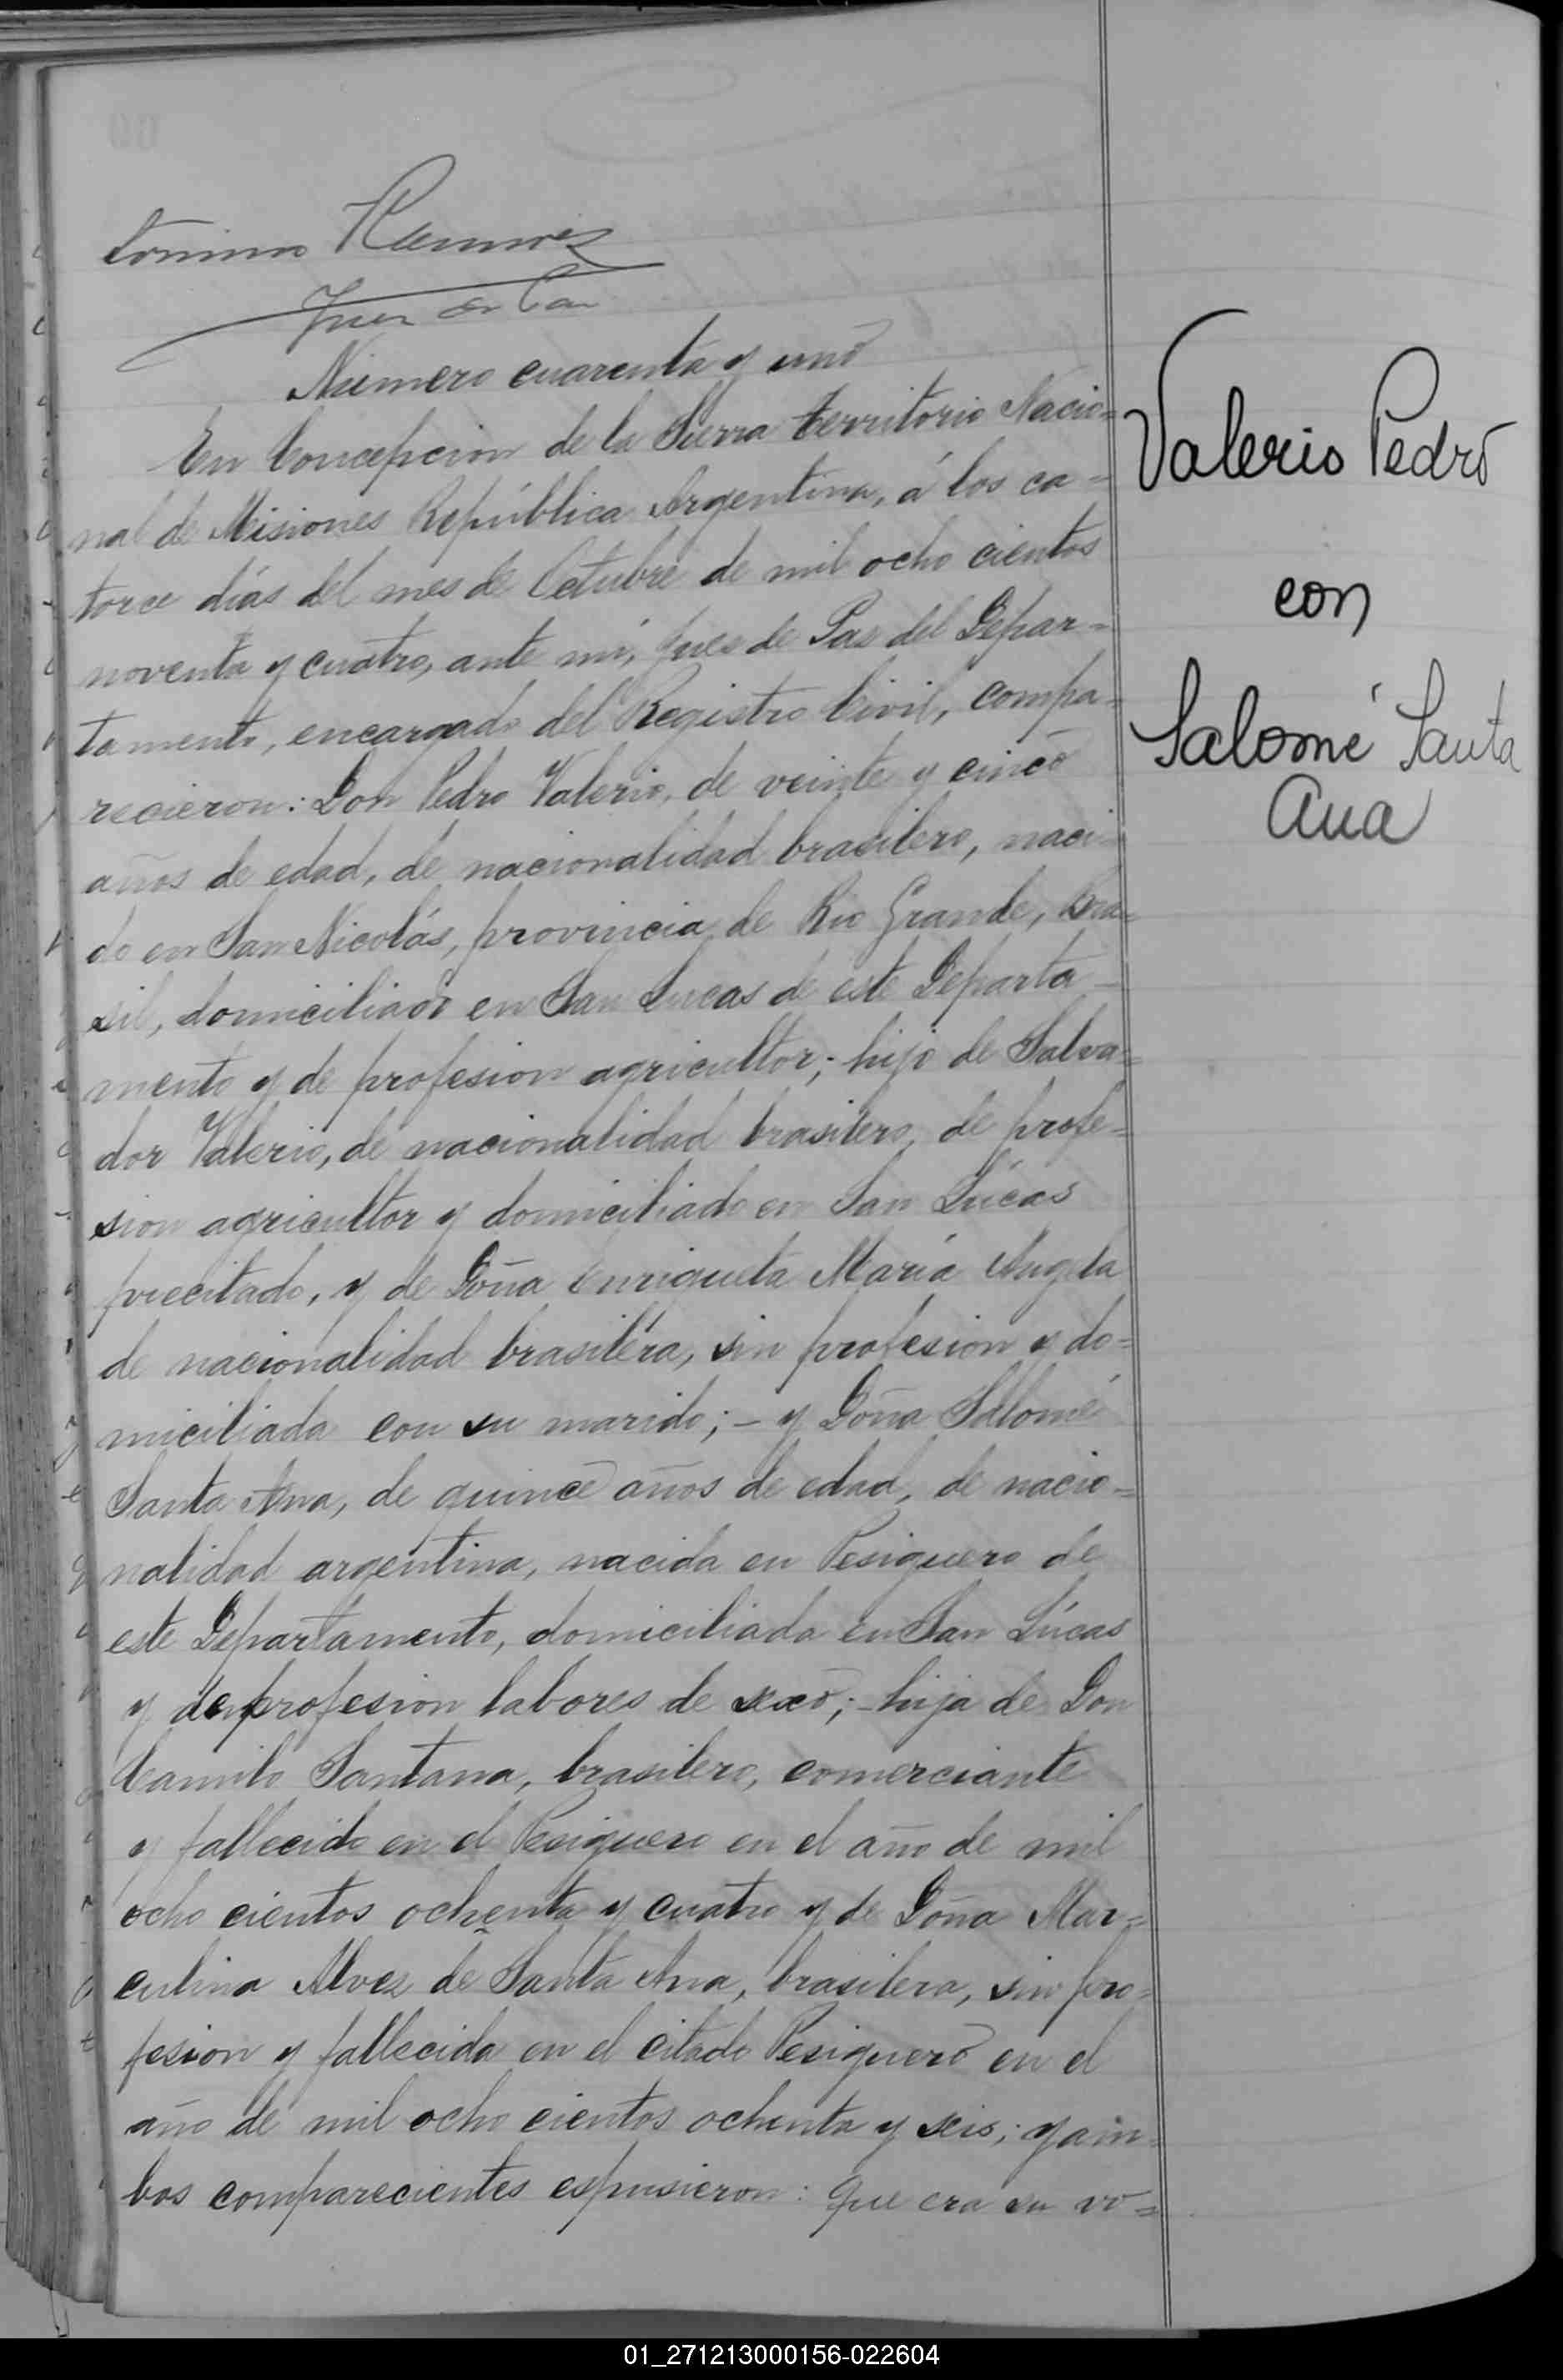 Ramirez
Juez de Paz
Número cuarenta y uno
En Concepcion de la Sierra territorio Nacio=
nal de Misiones República Argentina, á los ca=
torce días del mes de Octubre de mil ocho cientos
noventa y cuatro, ante mi, Jues de Pas del Depar=
tamento, encargado del Registro Civil, compa=
recieron: Don Pedro Valerio, de veinte y cinco
años de edad, de nacionalidad brasilero, naci-
do en San Nicolás, provincia de Rio Grande, Bra=
sil, domiciliado en San Lucas de este Departa-
mento y de profesion agricultor;- hijo de Salva=
dor Valerio, de nacionalidad brasilero, de profe=
sion agricultor y domiciliado en San Lúcas
precitado, y de Doña Enriqueta María Angela
de nacionalidad brasiléra, sin profesion y do=
miciliada con su marido;- y Doña Salomé
Santa Ana, de quince años de edad, de nacio=
nalidad argentina, nacida en Pesiguero de
este Departamento, domiciliada en San Lúcas
y de profesion labores de sexo;- hija de Don
Camilo Santana, brasilero, comerciante
y fallecido en el Pesiguero en el año de mil
ocho cientos ochenta y cuatro y de Doña Mar=
culina Alvez de Santa Ana, brasilera, sin pro=
fesion y fallecida en el citado Pesiguero en el
año de mil ocho cientos ochenta y seis; y am=
bos comparecientes espusieron: Que era su vo=
Valerio Pedro
con
Salomé Santa
Ana
01_271213000156-022604